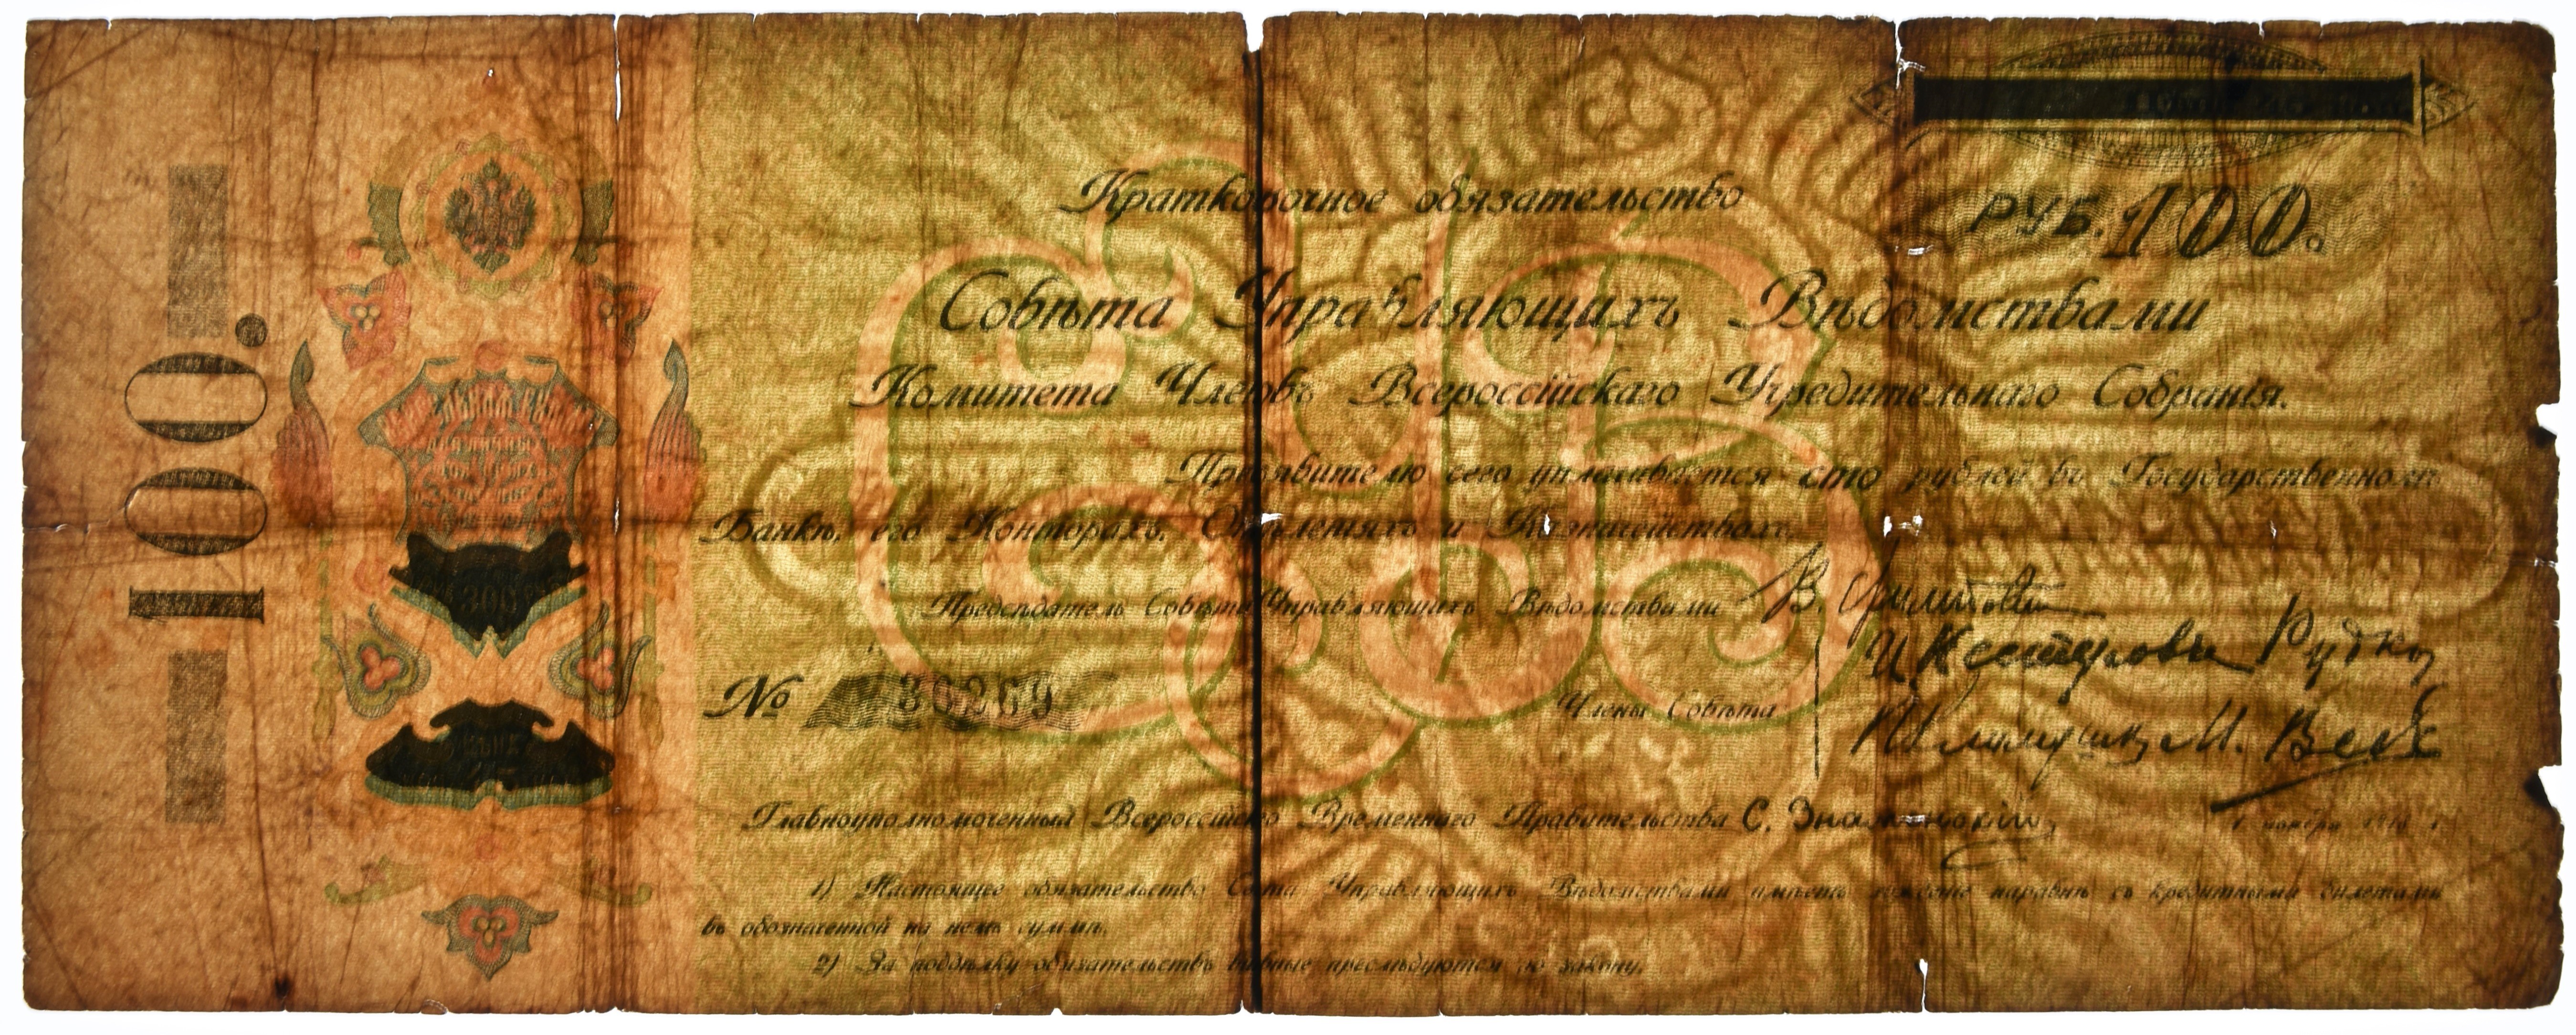 РУБ. 100.
Краткосрочное обязательство
Совѣта Управляющихъ Вѣдомствами
Комитета Членовъ Всероссійскаго Учредительнаго Собранія.
Предъявителю сего уплачивается сто рублей въ Государственномъ
Банкѣ, его Конторахъ, Отдѣленіяхъ и Казначействахъ.
Предсѣдатель Совѣта Управляющихъ Вѣдомствами
№ 36269
Члены Совѣта
Главноуполномоченный Всероссійскаго Временнаго Правительства С. Знаменскій.
1) Настоящее обязательство Совѣта Управляющихъ Вѣдомствами имѣетъ хожденіе наравнѣ съ кредитными билетами
въ обозначенной на немъ суммѣ.
2) За поддѣлку обязательствъ виновные преслѣдуются по закону.
100.